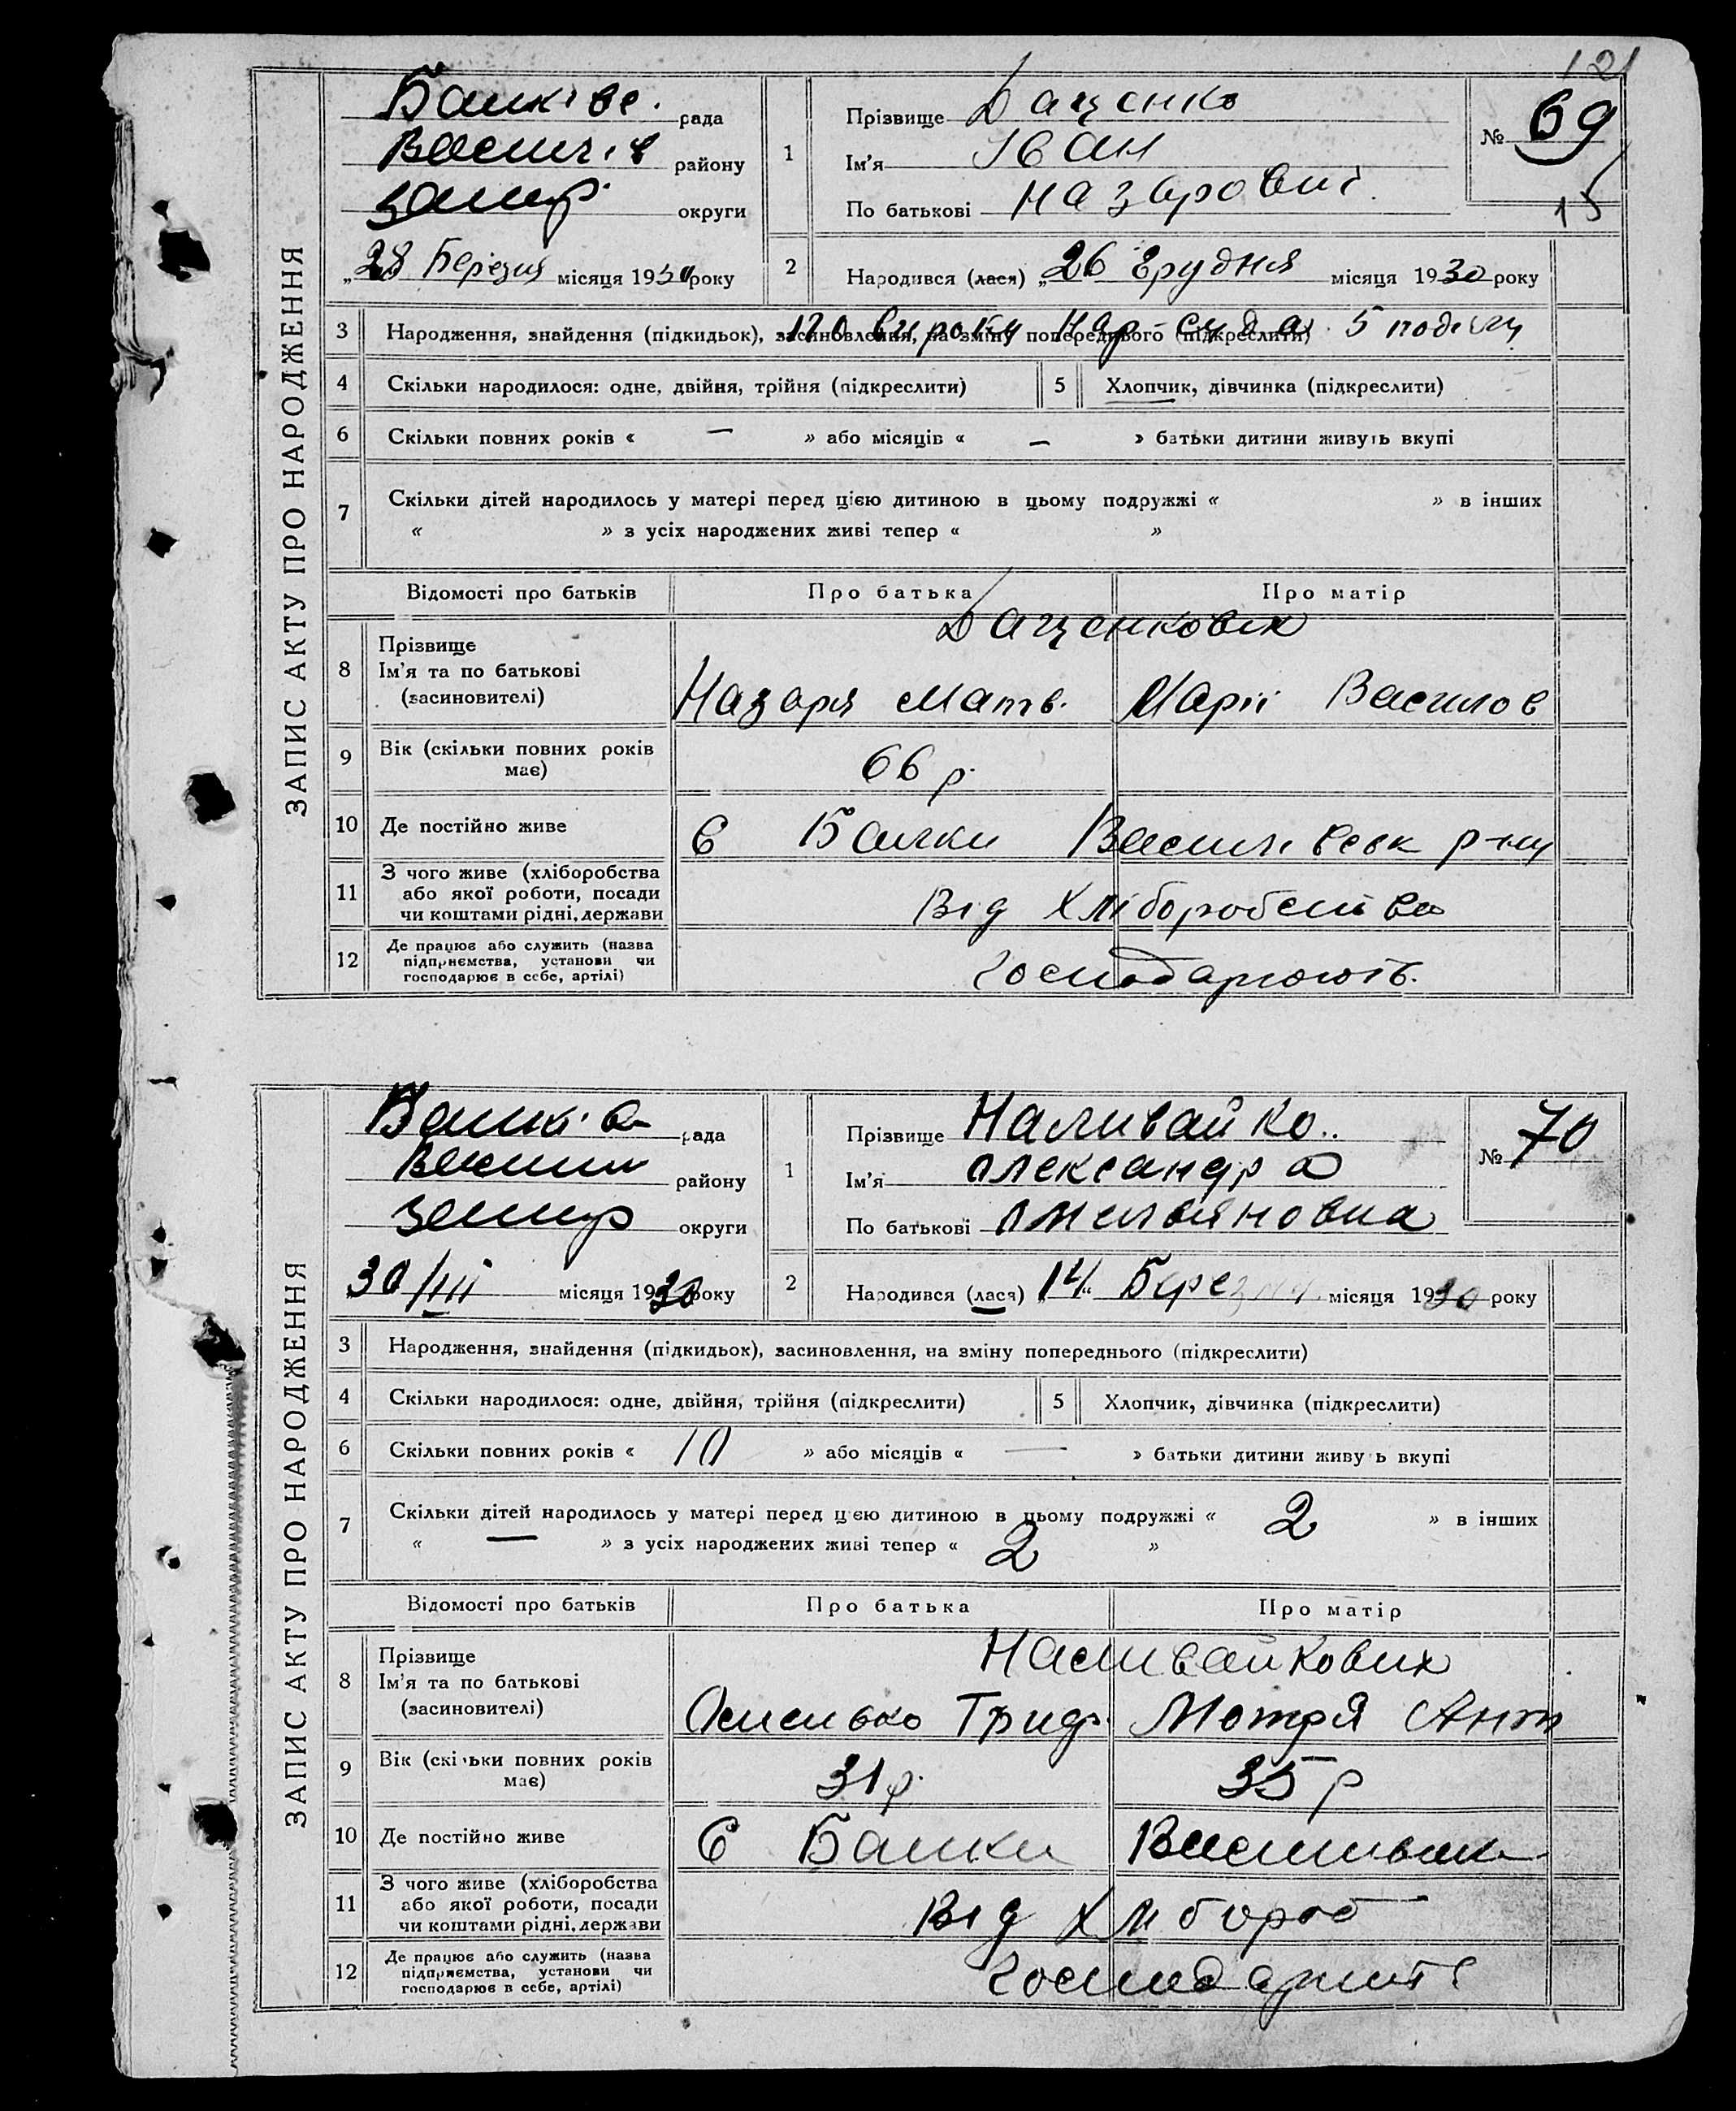 121
ЗАПИС АКТУ ПРО НАРОДЖЕННЯ
Балківс. рада
Василів району
Запор. округи
„28 Березня місяця 1930 року
1
Прізвище Даценко
Ім'я Іван
По батькові Назарович
№ 69
15
2
Народився (лася) „26 Грудня місяця 1930 року
3 Народження, знайдення (підкидьок), засиновлення, на зміну попереднього (підкреслити)
по вироку Нар суда 5
4 Скільки народилося: одне, двійня, трійня (підкреслити) 5 Хлопчик, дівчинка (підкреслити)
6 Скільки повних років « — » або місяців « — » батьки дитини живуть вкупі
7 Скільки дітей народилось у матері перед цією дитиною в цьому подружжі « » в інших
« » з усіх народжених живі тепер « »
Відомості про батьків Про батька Про матір
8 Прізвище
Ім'я та по батькові
(засиновителі)
Даценкових
Назаря Матв. Марії Василов
9 Вік (скільки повних років має) 66 р.
10 Де постійно живе С Балки Василівськ р-ну
11 З чого живе (хліборобства
або якої роботи, посади
чи коштами рідні, держави
Від Хліборобства
12 Де працює або служить (назва
підприємства, установи чи
господарює в себе, артілі)
Господарюють.
ЗАПИС АКТУ ПРО НАРОДЖЕННЯ
Балків рада
Васил району
Запор округи
30/III місяця 1930 року
1
Прізвище Наливайко
Ім'я Олександра
По батькові Омельяновна
№ 70
2
Народився (лася) „14“ Березня місяця 1930 року
3 Народження, знайдення (підкидьок), засиновлення, на зміну попереднього (підкреслити)
4 Скільки народилося: одне, двійня, трійня (підкреслити) 5 Хлопчик, дівчинка (підкреслити)
6 Скільки повних років « 10 » або місяців « — » батьки дитини живуть вкупі
7 Скільки дітей народилось у матері перед цією дитиною в цьому подружжі « 2 » в інших
« — » з усіх народжених живі тепер « 2 »
Відомості про батьків Про батька Про матір
8 Прізвище
Ім'я та по батькові
(засиновителі)
Наливайкових
Омелько Триф. Мотря Ант
9 Вік (скільки повних років має) 31 р. 35 р
10 Де постійно живе С Балки Василівськ
11 З чого живе (хліборобства
або якої роботи, посади
чи коштами рідні, держави
Від Хлібороб
12 Де працює або служить (назва
підприємства, установи чи
господарює в себе, артілі)